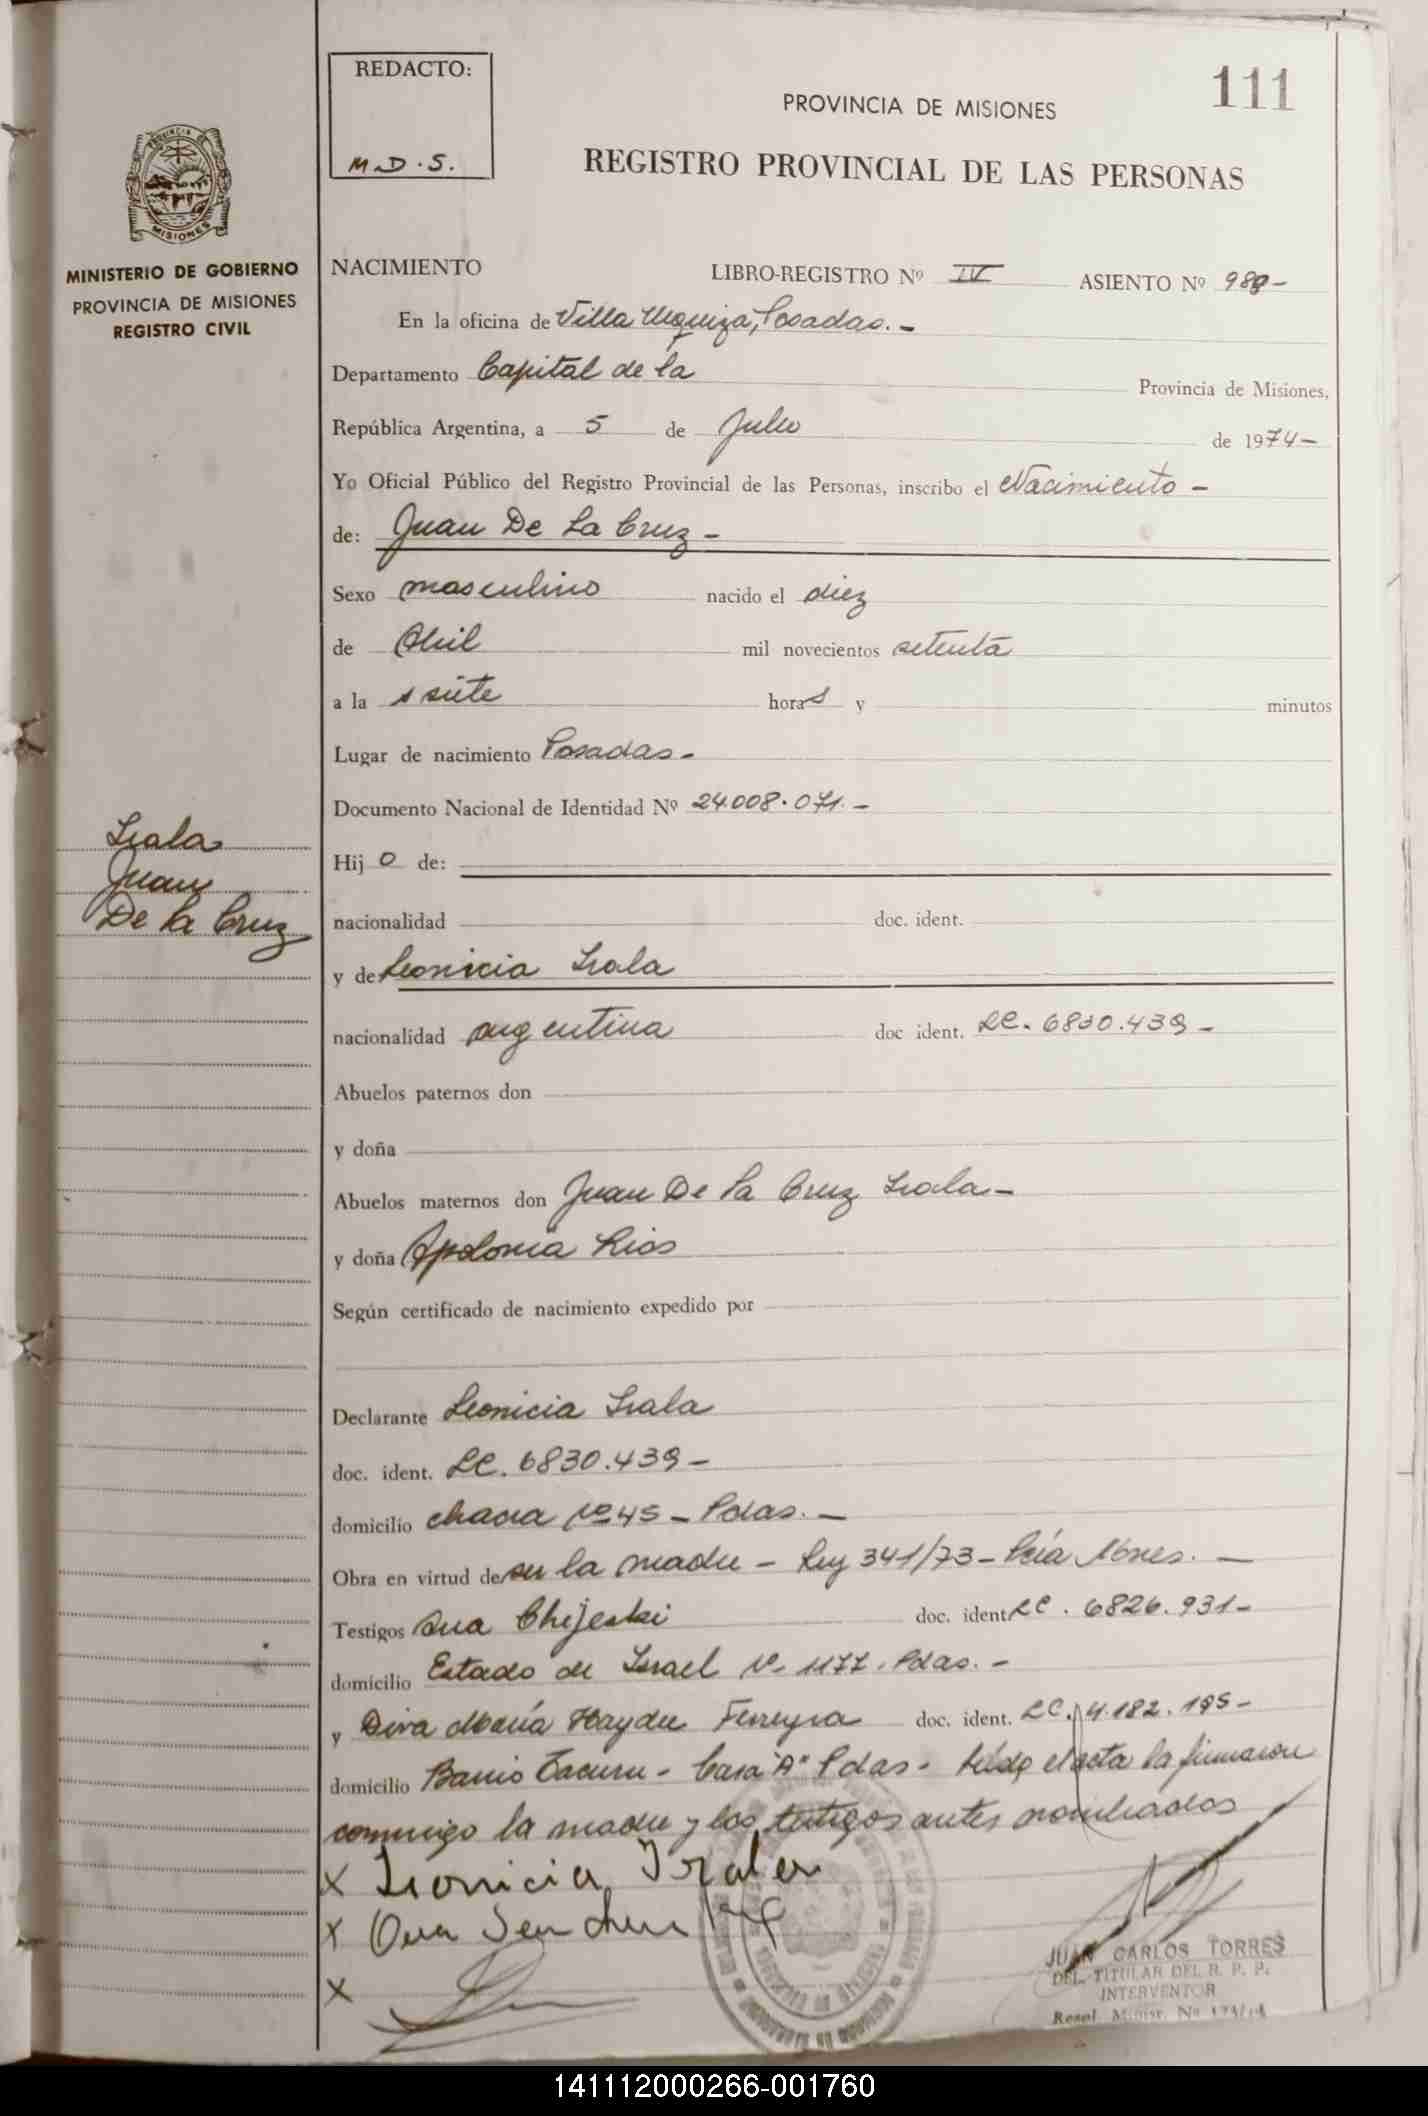 REDACTO:
M.D.S.
PROVINCIA DE MISIONES
111
REGISTRO PROVINCIAL DE LAS PERSONAS
PROVINCIA DE
MISIONES
MINISTERIO DE GOBIERNO
PROVINCIA DE MISIONES
REGISTRO CIVIL
NACIMIENTO LIBRO-REGISTRO Nº IV ASIENTO Nº 988-
En la oficina de Villa Urquiza, Posadas.-
Departamento Capital de la Provincia de Misiones,
República Argentina, a 5 de Julio de 1974-
Yo Oficial Público del Registro Provincial de las Personas, inscribo el Nacimiento -
de: Juan De La Cruz -
Sexo masculino nacido el diez
de Abril mil novecientos setenta
a la s siete horas y minutos
Lugar de nacimiento Posadas-
Documento Nacional de Identidad Nº 24.008.071.-
Irala
Juan
De la Cruz
Hij o de:
nacionalidad doc. ident.
y de Leonicia Irala
nacionalidad argentina doc ident. LC. 6830.439-
Abuelos paternos don
y doña
Abuelos maternos don Juan De la Cruz Irala-
y doña Apolonia Rios
Según certificado de nacimiento expedido por
Declarante Leonicia Irala
doc. ident. LC. 6830.439-
domicilio chacra Nº 45 - Pdas.-
Obra en virtud de ser la madre - Ley 341/73 - Pcia Mnes. -
Testigos Ana Chijeski doc. ident LC. 6826.931-
domicilio Estado de Israel Nº 1177. Pdas.-
y Diva María Haydee Ferreyra doc. ident. LC. 4.182.195-
domicilio Barrio Tacuru - Casa "A" Pdas - Leída el acta la firmaron
conmigo la madre y los testigos antes nombrados
x Leonicia Irala
x Ana
x
JUAN CARLOS TORRES
DEL. TITULAR DEL R. P. P.
INTERVENTOR
Resol. Minist. Nº
141112000266-001760